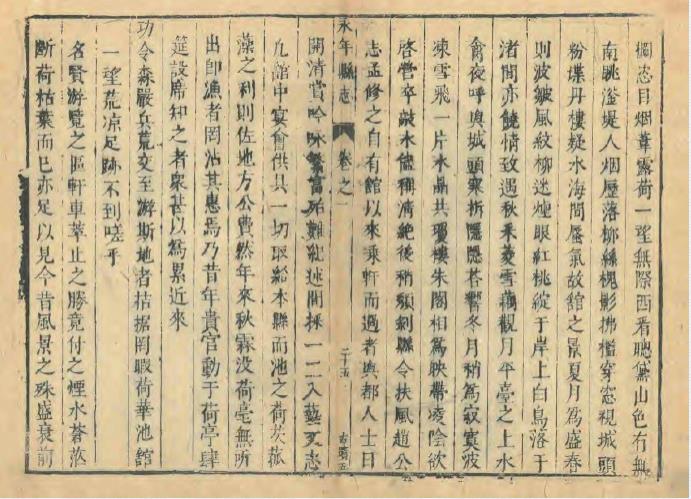 恣目烟葦露荷一望無際西看聰黛山色有無
南眺滏堤人烟歷落柳絲槐影拂檻穿窓視城頭
粉堞丹樓疑水海間蜃氣故舘之景夏月爲盛春
則波皺風紋柳迷煙眼紅桃綻于岸上白鳥落于
渚間亦饒情致過秋采菱雪藕觀月平臺之上水
禽夜呼與城頭寒柝隱隱荅響冬月稍爲寂寞波
凍雪飛一片水晶共瓊樓朱閣相爲映帶凌陰欲
啓營卒鼓水儘稱淸絶後稍頽剝縣令扶風趙公
志孟修之自有舘以來乘軒而過者與都人士日
永年縣志 卷之一 二十五 古蹟五
開淸嘗吟咏繁富殆難紀述間採一二入藝文志
凢舘中宴會供具一切取給本縣而池之荷芡菰
藻之利則佐地方公費然年來秋霖没荷亭無所
出卽漁者罔沾其惠焉乃昔年貴官動于荷亭肆
筵設席知之者衆甚以爲累近來
功令森嚴兵荒交至游斯地者拮据罔暇荷華池舘
一望荒凉足跡不到嗟乎
名賢游覽之區軒車萃止之勝竟付之煙水蒼茫
斷荷枯葉而已亦足以見今昔風景之殊盛衰前